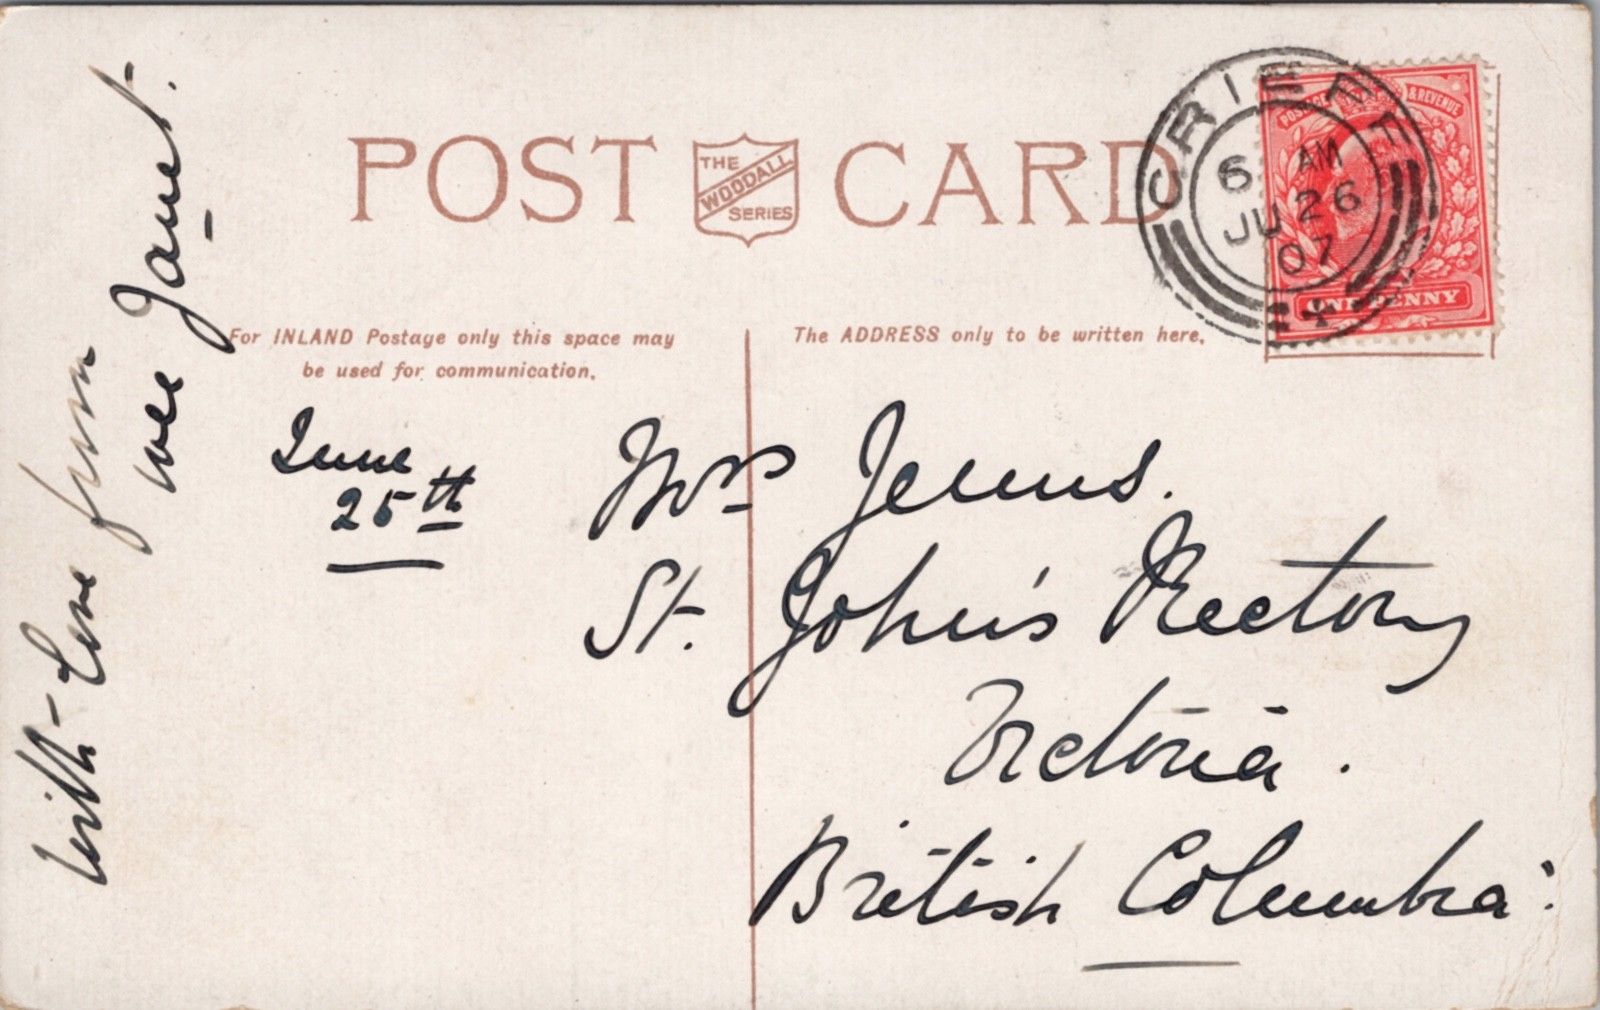 POST CARD
THE
WOODALL
SERIES
CRIEFF
6 AM
JU 26
07
POSTAGE & REVENUE
ONE PENNY
For INLAND Postage only this space may
be used for communication.
The ADDRESS only to be written here.
With love from
wee Janet.
June
25th
Mrs Jenns.
St. John's Rectory
Victoria.
British Columbia.